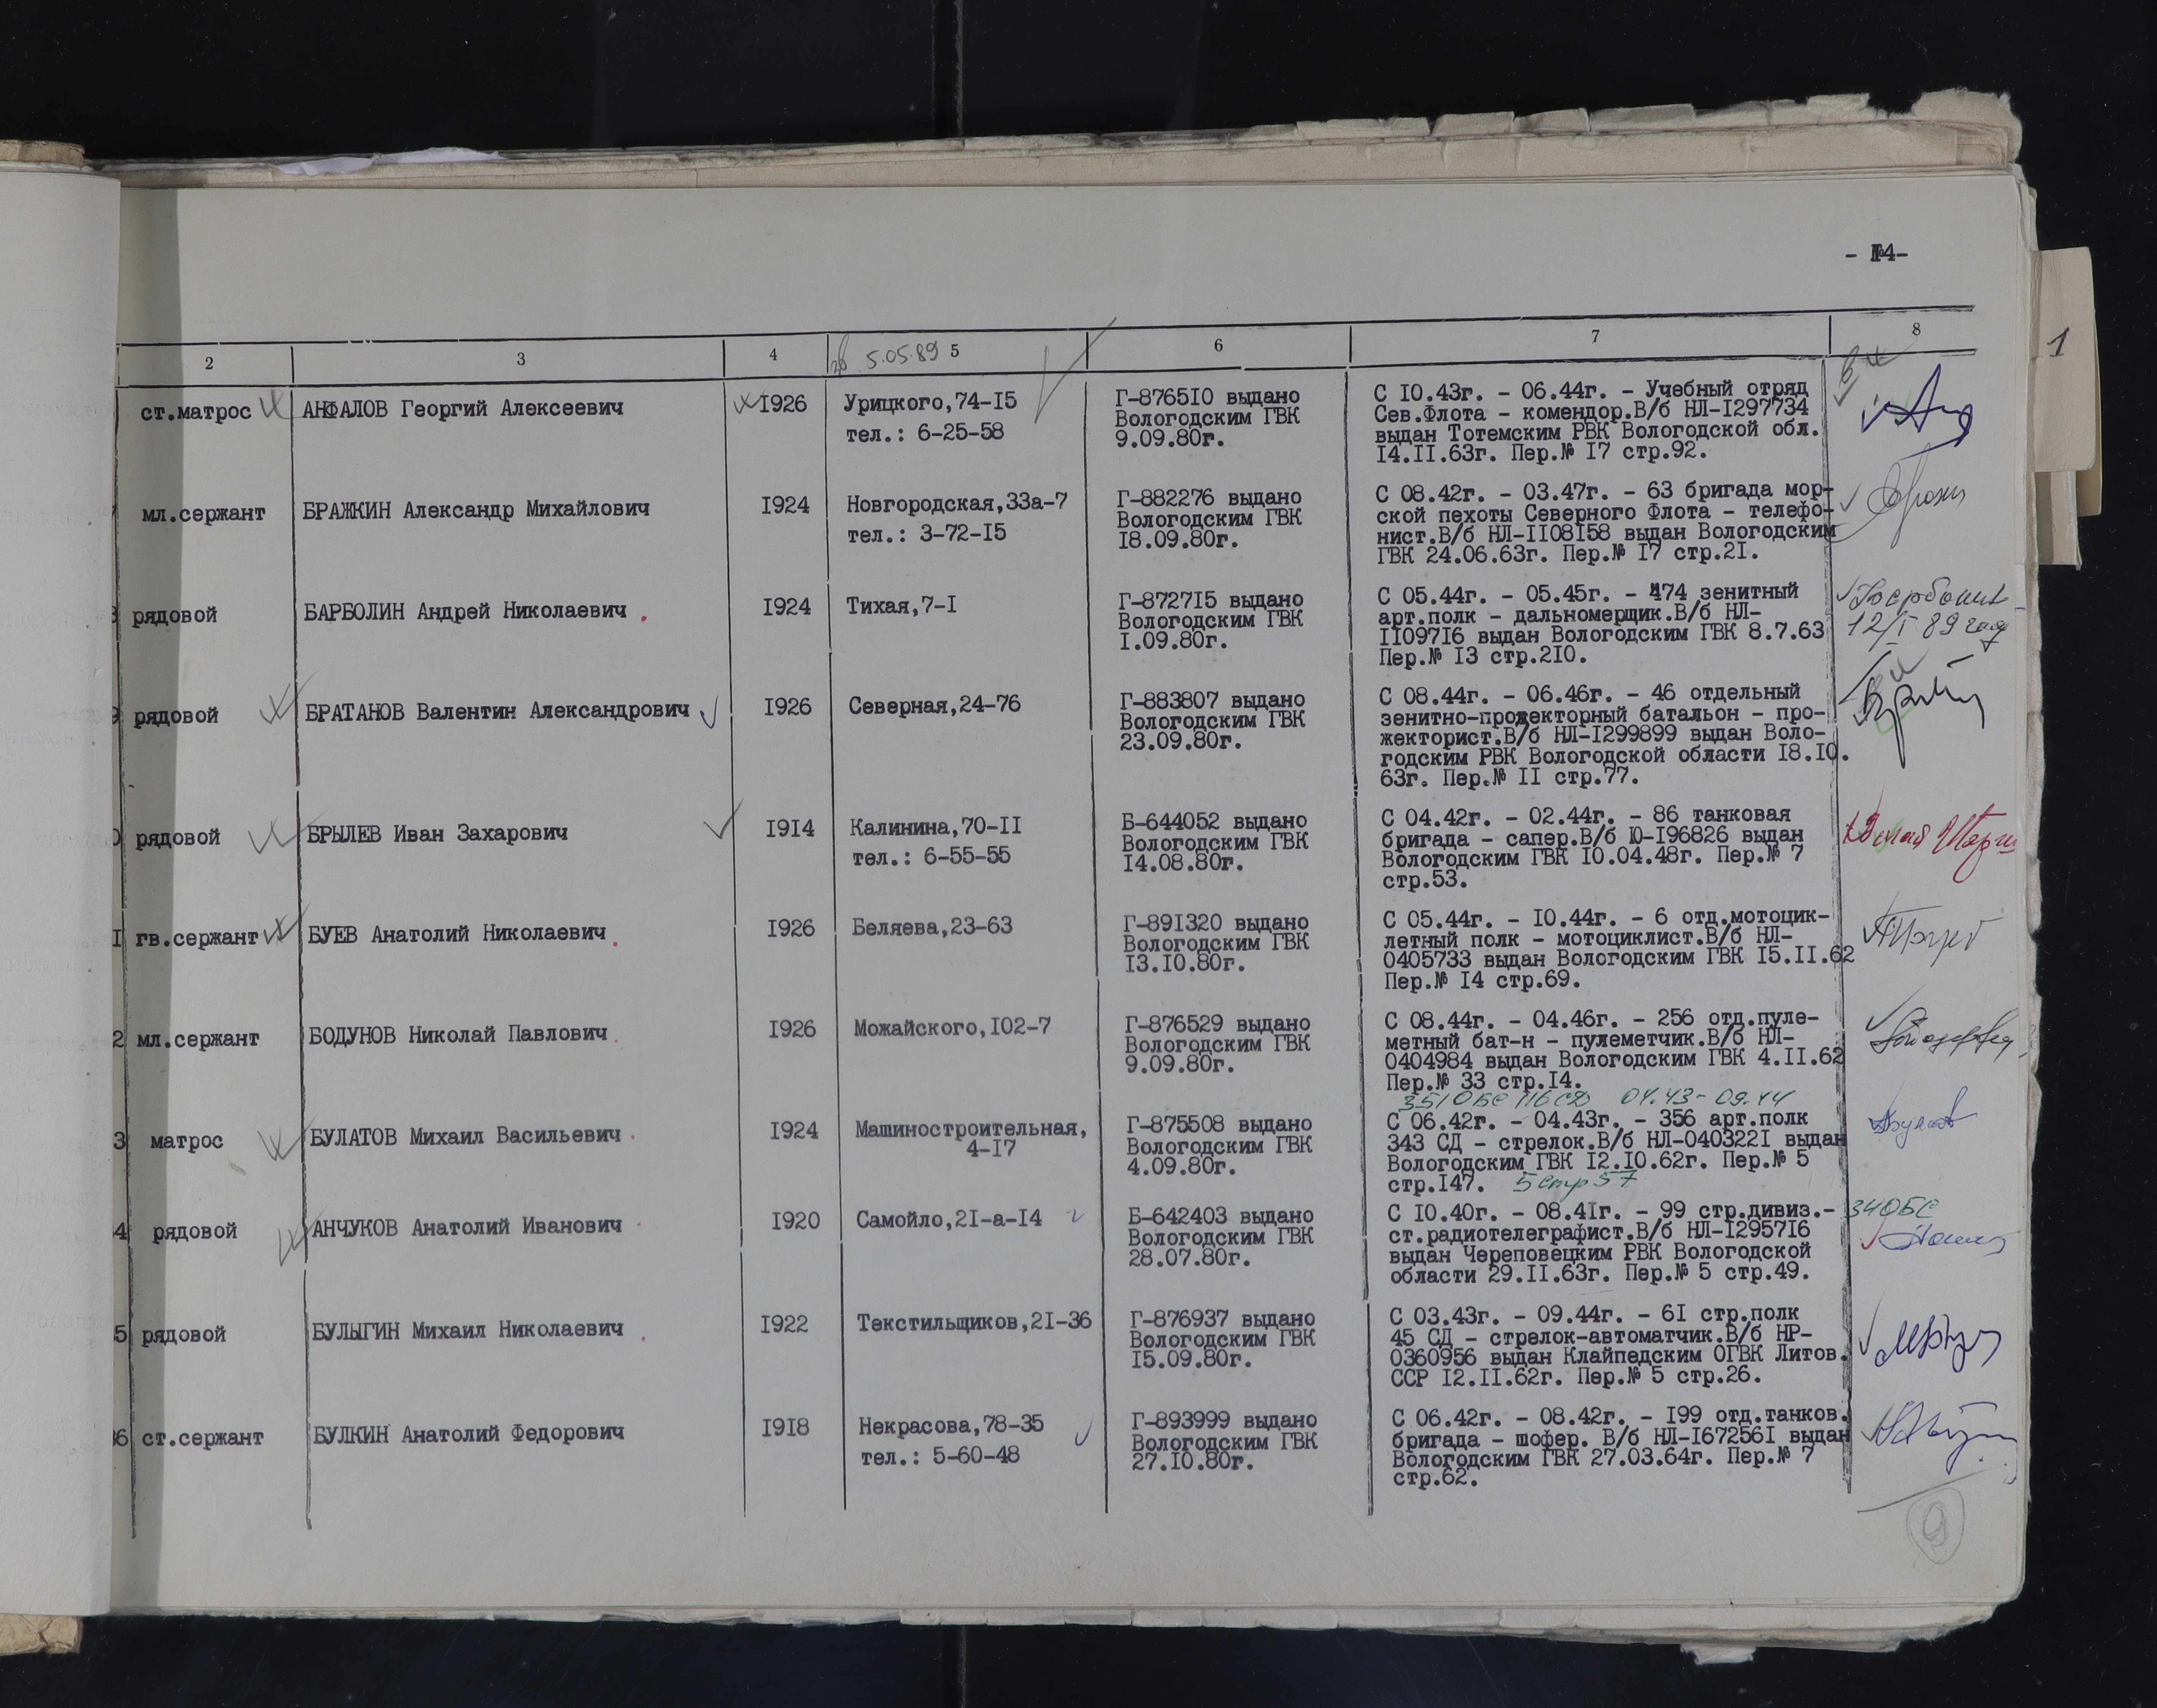 - 14-
1
2 3 4 5 6 7 8
5.05.89
ст.матрос АНФАЛОВ Георгий Алексеевич 1926 Урицкого,74-15 Г-876510 выдано С 10.43г. - 06.44г. - Учебный отряд
тел.: 6-25-58 Вологодским ГВК Сев.Флота - комендор.В/б НЛ-1297734
9.09.80г. выдан Тотемским РВК Вологодской обл.
14.11.63г. Пер.№ 17 стр.92.
мл.сержант БРАЖКИН Александр Михайлович 1924 Новгородская,33а-7 Г-882276 выдано С 08.42г. - 03.47г. - 63 бригада мор-
тел.: 3-72-15 Вологодским ГВК ской пехоты Северного Флота - телефо-
18.09.80г. нист.В/б НЛ-1108158 выдан Вологодским
ГВК 24.06.63г. Пер.№ 17 стр.21.
рядовой БАРБОЛИН Андрей Николаевич 1924 Тихая,7-1 Г-872715 выдано С 05.44г. - 05.45г. - 474 зенитный
Вологодским ГВК арт.полк - дальномерщик.В/б НЛ-
1.09.80г. 1109716 выдан Вологодским ГВК 8.7.63 12/I 89 года
Пер.№ 13 стр.210.
рядовой БРАТАНОВ Валентин Александрович 1926 Северная,24-76 Г-883807 выдано С 08.44г. - 06.46г. - 46 отдельный
Вологодским ГВК зенитно-прожекторный батальон - про-
23.09.80г. жекторист.В/б НЛ-1299899 выдан Воло-
годским РВК Вологодской области 18.10.
63г. Пер.№ 11 стр.77.
0 рядовой БРЫЛЕВ Иван Захарович 1914 Калинина,70-11 Б-644052 выдано С 04.42г. - 02.44г. - 86 танковая
тел.: 6-55-55 Вологодским ГВК бригада - сапер.В/б Ю-196826 выдан
14.08.80г. Вологодским ГВК 10.04.48г. Пер.№ 7
стр.53.
1 гв.сержант БУЕВ Анатолий Николаевич 1926 Беляева,23-63 Г-891320 выдано С 05.44г. - 10.44г. - 6 отд.мотоцик-
Вологодским ГВК летный полк - мотоциклист.В/б НЛ-
13.10.80г. 0405733 выдан Вологодским ГВК 15.11.62
Пер.№ 14 стр.69.
2 мл.сержант БОДУНОВ Николай Павлович 1926 Можайского,102-7 Г-876529 выдано С 08.44г. - 04.46г. - 256 отд.пуле-
Вологодским ГВК метный бат-н - пулеметчик.В/б НЛ-
9.09.80г. 0404984 выдан Вологодским ГВК 4.11.62
Пер.№ 33 стр.14.
351 ОБС 116 СД 04.43-09.44
3 матрос БУЛАТОВ Михаил Васильевич 1924 Машиностроительная, Г-875508 выдано С 06.42г. - 04.43г. - 356 арт.полк
4-17 Вологодским ГВК 343 СД - стрелок.В/б НЛ-0403221 выдан
4.09.80г. Вологодским ГВК 12.10.62г. Пер.№ 5
стр.147. 5 стр 57
4 рядовой АНЧУКОВ Анатолий Иванович 1920 Самойло,21-а-14 Б-642403 выдано С 10.40г. - 08.41г. - 99 стр.дивиз.- 34 ОБС
Вологодским ГВК ст.радиотелеграфист.В/б НЛ-1295716
28.07.80г. выдан Череповецким РВК Вологодской
области 29.11.63г. Пер.№ 5 стр.49.
5 рядовой БУЛЫГИН Михаил Николаевич 1922 Текстильщиков,21-36 Г-876937 выдано С 03.43г. - 09.44г. - 61 стр.полк
Вологодским ГВК 45 СД - стрелок-автоматчик.В/б НР-
15.09.80г. 0360956 выдан Клайпедским ОГВК Литов.
ССР 12.11.62г. Пер.№ 5 стр.26.
6 ст.сержант БУЛКИН Анатолий Федорович 1918 Некрасова,78-35 Г-893999 выдано С 06.42г. - 08.42г. - 199 отд.танков.
тел.: 5-60-48 Вологодским ГВК бригада - шофер. В/б НЛ-1672561 выдан
27.10.80г. Вологодским ГВК 27.03.64г. Пер.№ 7
стр.62.
9